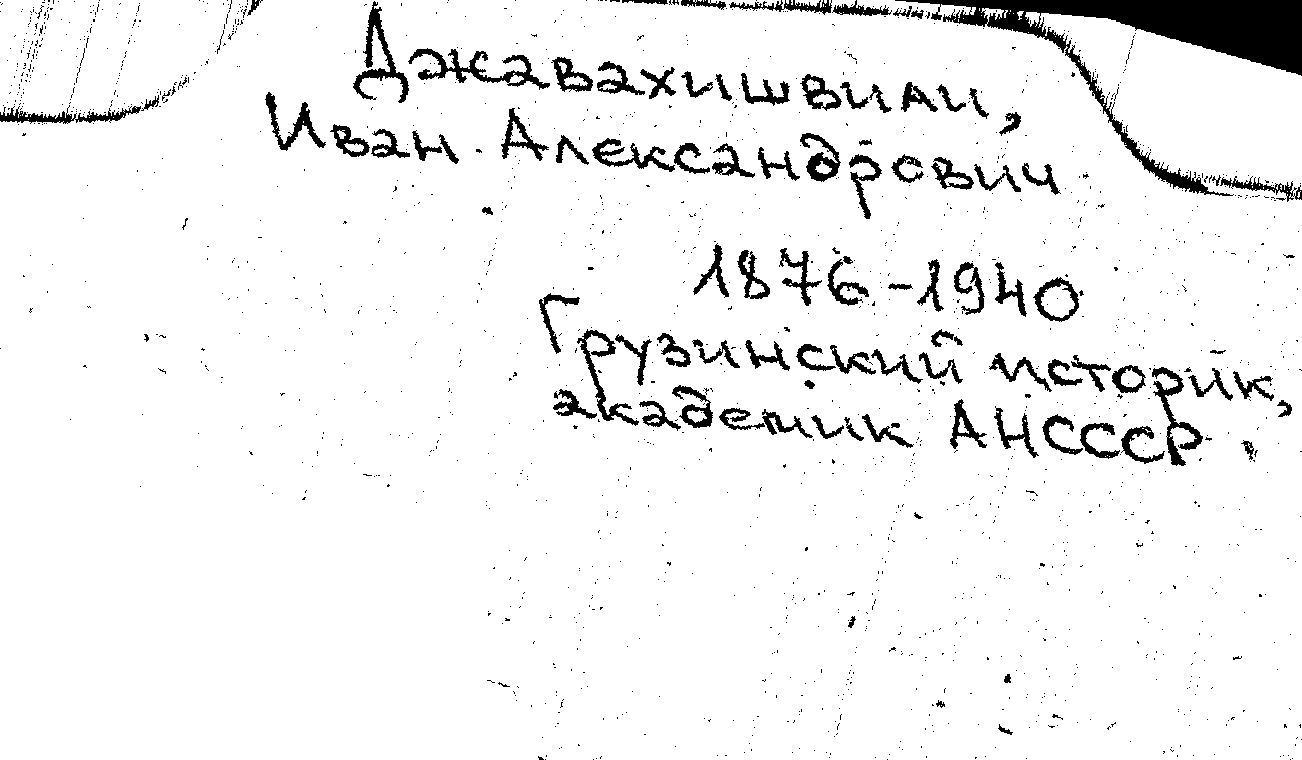 Джавахишвили,
Иван Александрович
1876-1940
Грузинский историк,
академик АНСССР.